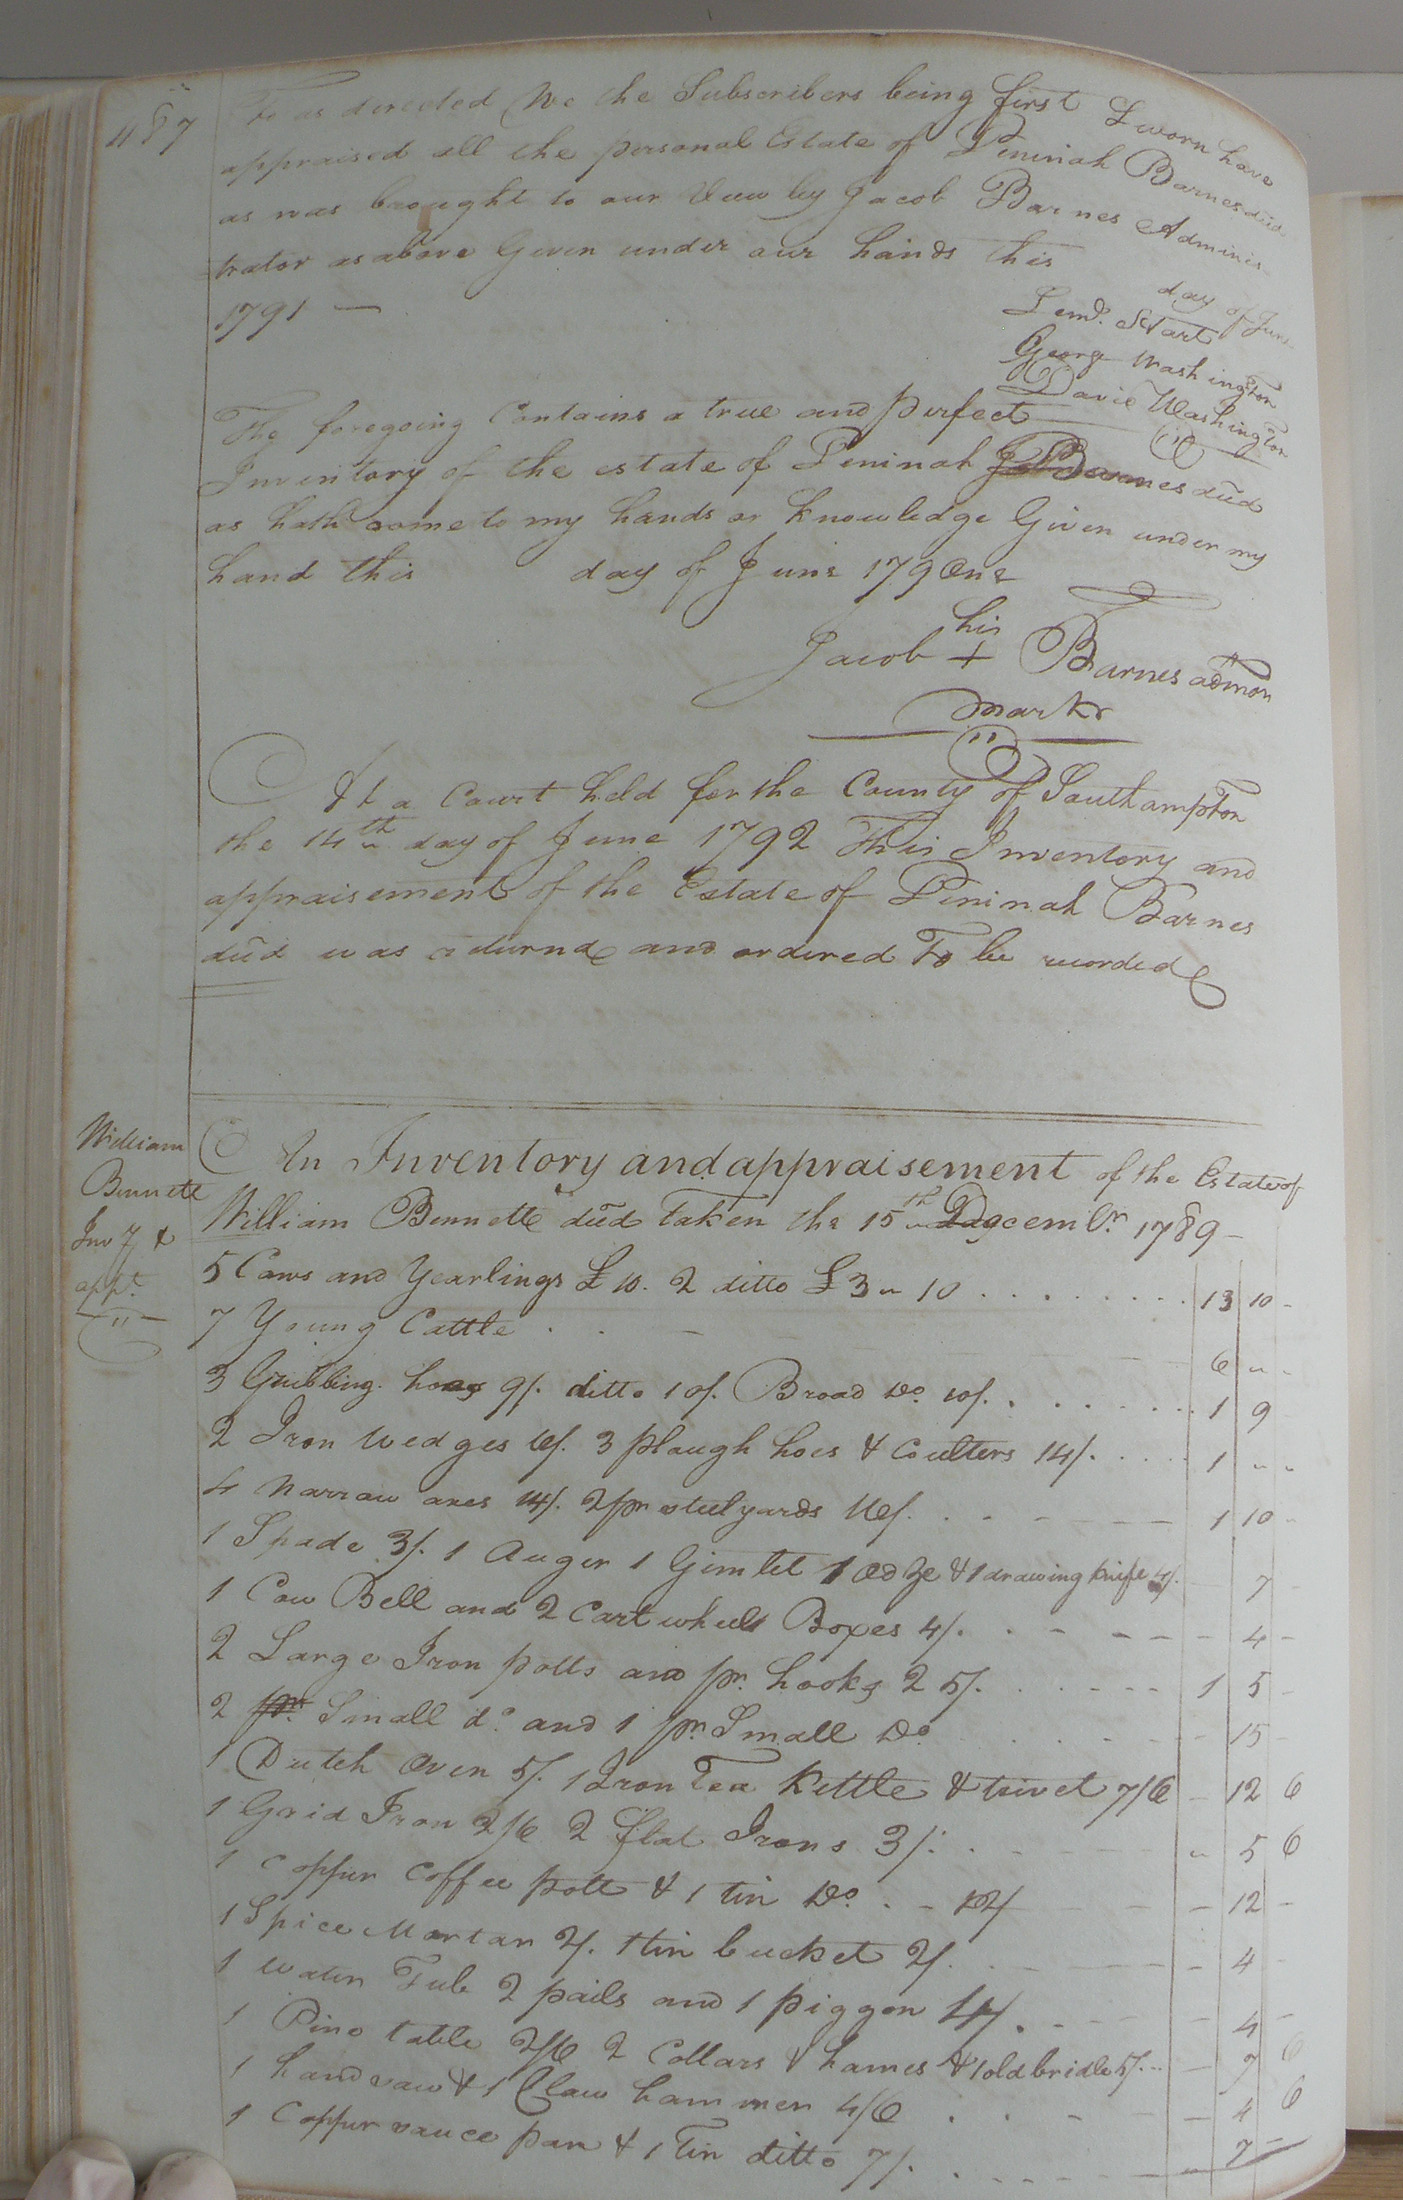 487
To as directed We the Subscribers being first Sworn have
appraised all the personal Estate of Peninah Barnes decd
as was brought to our View by Jacob Barnes Adminis-
trator as above Given under our hands this day of June
1791 —
Lemd. Start
George Washington
Davie Washington
The foregoing Contains a true and perfect
Inventory of the estate of Peninah Barnes decd
as hath come to my hands or knowledge Given under my
hand this day of June 179One
his
Jacob + Barnes admon
mark
At a Court held for the County of Southampton
the 14th day of June 1792 This Inventory and
appraisement of the Estate of Peninah Barnes
decd was returnd and ordered To be recorded
William
Bennett
Invy &
appt.
An Inventory and appraisement of the Estate of
William Bennett decd taken the 15th Decembr. 1789 –
5 Cows and Yearlings £ 10. 2 ditto £ 3 " 10 13 10 -
7 Young Cattle 6 " -
3 Grubbing hoes 9/. ditto 10/. Broad Do. 10/. 1 9
2 Iron Wedges 6/. 3 plough hoes & Coulters 14/. 1 " "
4 Narrow axes 14/. 2 pr steelyards 16/. 1 10 -
1 Spade 3/. 1 Auger 1 Gimlet 1 Adze & 1 drawing knife 4/. 7 -
1 Cow Bell and 2 Cart wheel Boxes 4/. 4 -
2 Large Iron potts and pr. hooks 25/. 1 5 -
2 pr. Small do. and 1 pr. Small Do 15 -
1 Dutch Oven 5/. 1 Iron Tea Kettle & trivet 7/6 12 6
1 Grid Iron 2/6 2 flat Irons 3/. " 5 6
1 Copper Coffee pott & 1 tin Do. 12/ 12 -
1 Spice Mortar 2/. 1 tin bucket 2/. 4 -
1 water Tub 2 pails and 1 piggon 4/. 4 -
1 Pine table 2/6 2 Collars & hames & 1 old bridle 5/. 7 6
1 handsaw & 1 Claw hammer 4/6 4 6
1 Copper sauce pan & 1 Tin ditto 7/. 7 -